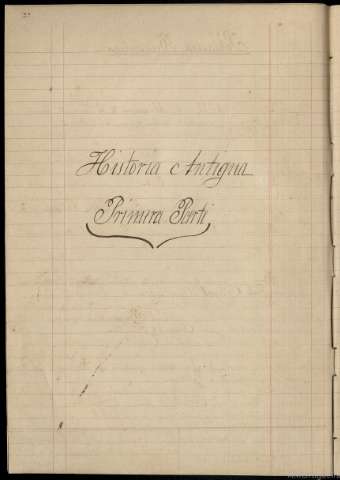 Historia Antigua
Primera Parte